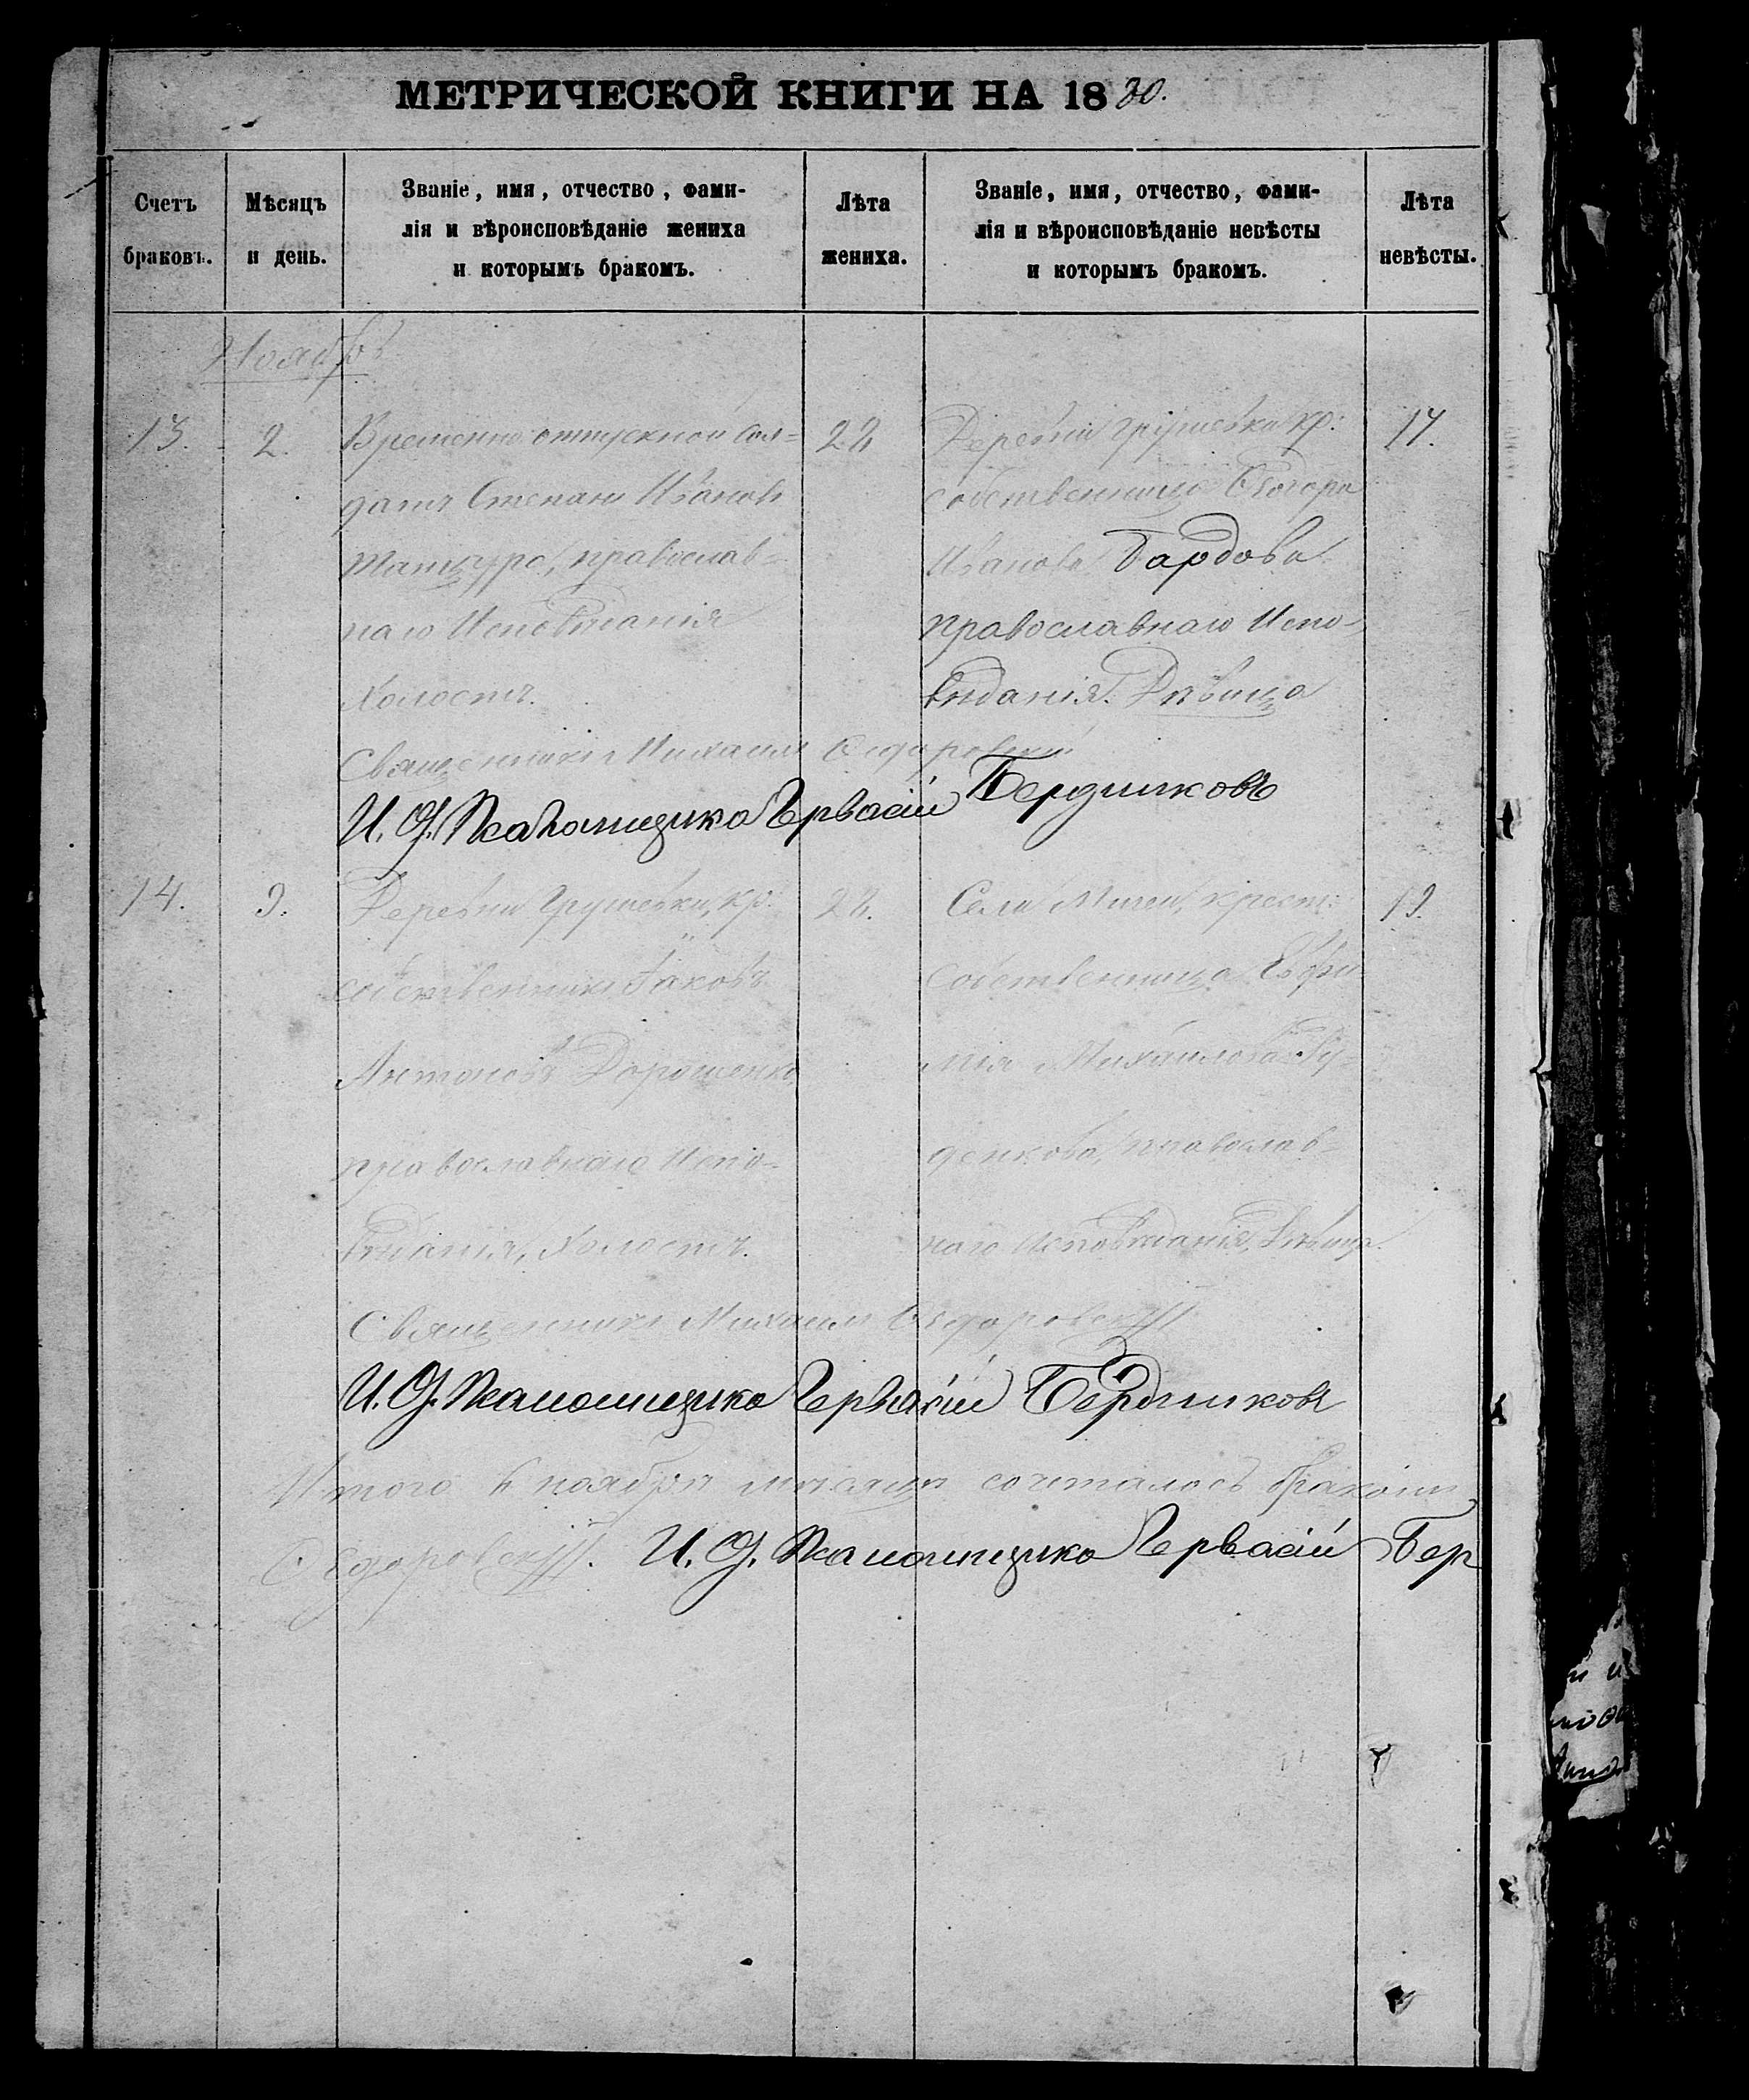 МЕТРИЧЕСКОЙ КНИГИ НА 1880.
Счетъ браковъ.
Мѣсяцъ и день.
Званіе, имя, отчество, фами-
лія и вѣроисповѣданіе жениха
и которымъ бракомъ.
Лѣта жениха.
Званіе, имя, отчество, фами-
лія и вѣроисповѣданіе невѣсты
и которымъ бракомъ.
Лѣта невѣсты.
Ноябрь
13.
2.
Временно отпускной сол-
датъ Степанъ Ивановъ
православ-
наго Исповѣданія
Холостъ.
22
Деревни Грушевки кр:
собственница Ѳеодора
Иванова Бардова
православнаго Испо-
вѣданія. Дѣвица
17.
Священникъ Михаилъ Ѳедоровскій
И. Д. Псаломщика Гервасій Бердниковъ
14.
9.
Деревни Грушевки, кр:
собственникъ Іаковъ
Антоновъ Дорошенко
православнаго Испо-
вѣданія, Холостъ.
22.
Села крест:
собственница Евфи-
мія Михайлова
православ-
наго Исповѣданія, Дѣвица.
19.
Священникъ Михаилъ Ѳедоровскій
И. Д. Псаломщика Гервасій Бердниковъ
Итого въ ноябрѣ мѣсяцѣ сочеталось бракомъ
Ѳедоровскій. И. Д. Псаломщика Гервасій Бер